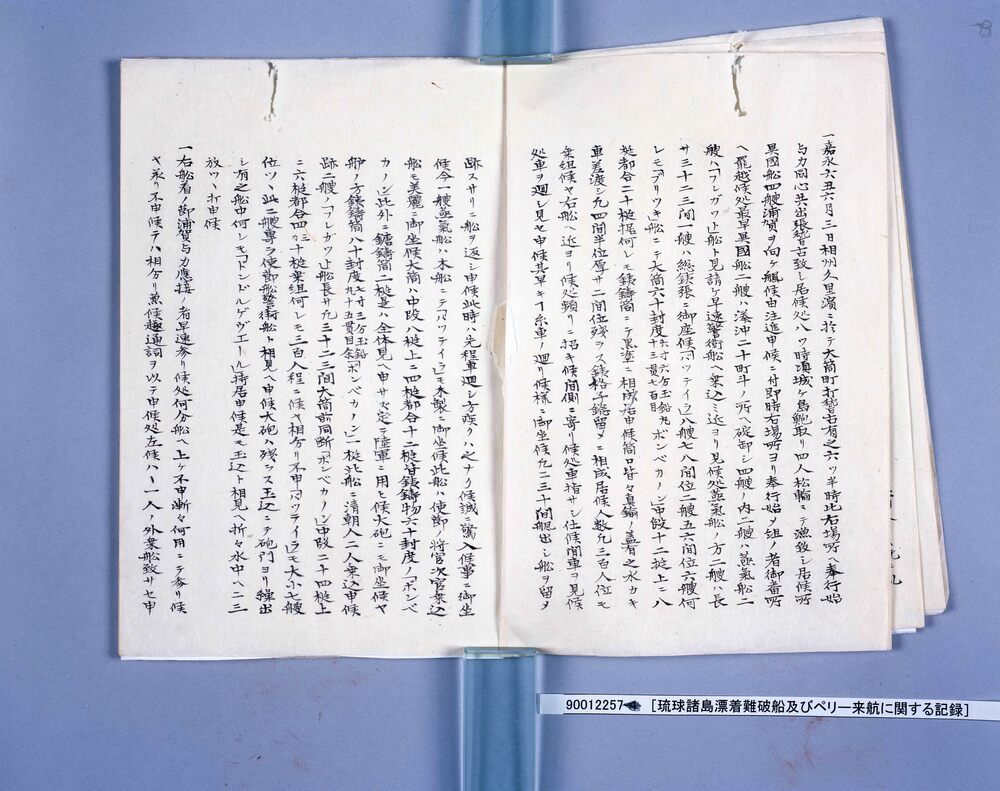 一嘉永六丑六月三日相州久里濱ニ於テ大筒町打稽古有之六ツ半時比右場所ヘ奉行始
与力同心共出張稽古致シ居候処八ツ時頃城ヶ島鮑取リ四人松輪ニテ漁致シ居候所
異國船四艘浦賀ヲ向ケ颿候由注進申候ニ付即時右場所ヨリ奉行始メ組ノ者御番所
ヘ罷越候処最早異國船二艘ハ湊沖二十町斗ノ所ヘ碇卸シ四艘ノ内二艘ハ蒸氣船二
艘ハフレガット船ト見請ケ早速警衛船ヘ乗込ミ近ヨリ見候処蒸氣船ノ方二艘ハ長
サ三十二三間一艘ハ総銕張ニ御座候バッテイラ八艘七八間位二艘五六間位六艘何
レモブリツキ船ニテ大筒六十封度六寸六分玉鉛九十三貫七百目ボンベカノン中段十二挺上ニ八
挺都合二十挺挺何レモ銕鋳筒ニテ黒塗ニ相成居申候筒口皆々真鍮ノ蓋有之水カキ
車差渡シ九四間半位厚サ二間位残ラス銕格子鋲留メニ相成居候人数九三百人位モ
乗組候ヤ右船ヘ近ヨリ候処頻リニ招キ候間側ニ寄リ候処車指サシ仕候間車ヲ見候
処車ヲ廻シ見セ申候其早キ事糸車ノ廻リ候様ニ御坐候九二三十間颿出シ船ヲ留メ
跡スサリニ船ヲ返シ申候此時ハ先程車廻シ方疾クハ之ナク候誠ニ驚入候事ニ御坐
候今一艘蒸氣船ハ木船ニテバッテイラモ木製ニ御坐候此船ハ使節ノ将官次官乗込
船モ美麗ニ御坐候大筒ハ中段八挺上ニ四挺都合十二挺皆銕鋳物六十封度ノボンベ
カノン此外ニ鋳筒二挺是ハ全体見ヘ申サズ定テ陸軍ニ用ヒ候大砲ニモ御坐候ヤ
舮ノ方銕鋳筒八十封度七寸三分玉鉛九十五貫目余ボンベカノン一挺此船ニ清朝人二人乗込申候
跡二艘ノフレガット船長サ九三十二三間大筒前同断ボンベカノン中段二十四挺上
ニ六挺都合四三十挺乗組何レモ三百人程ニ候ヤ相分リ不申バッテイラモ大小七艘
位ツヽ此二艘専ラ使節船警衛船ト相見ヘ申候大砲ハ残ラス玉込ニテ砲門ヨリ繰出
シ有之船中何レモドンドルゲヴエール持居申候是モ玉込ト相見ヘ折々水中ヘ二三
放ツヽ打申候
一右船着ノ節浦賀与力應接ノ者早速参リ候処何分船ヘ上ケ不申漸々何用ニテ参リ候
ヤ承リ不申候テハ相分リ兼候趣通詞ヲ以テ申候処左候ハヽ一人ノ外乗船致サセ申
90012257
[琉球諸島漂着難破船及びペリー来航に関する記録]